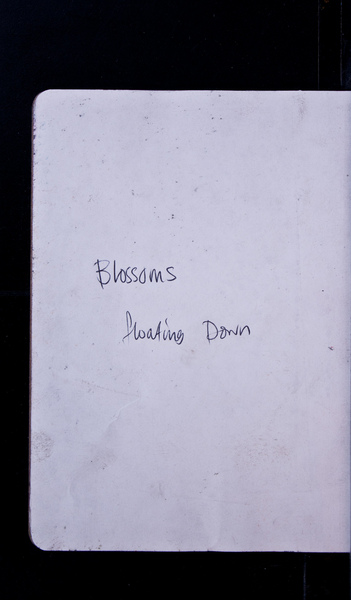 Blossoms
floating Down